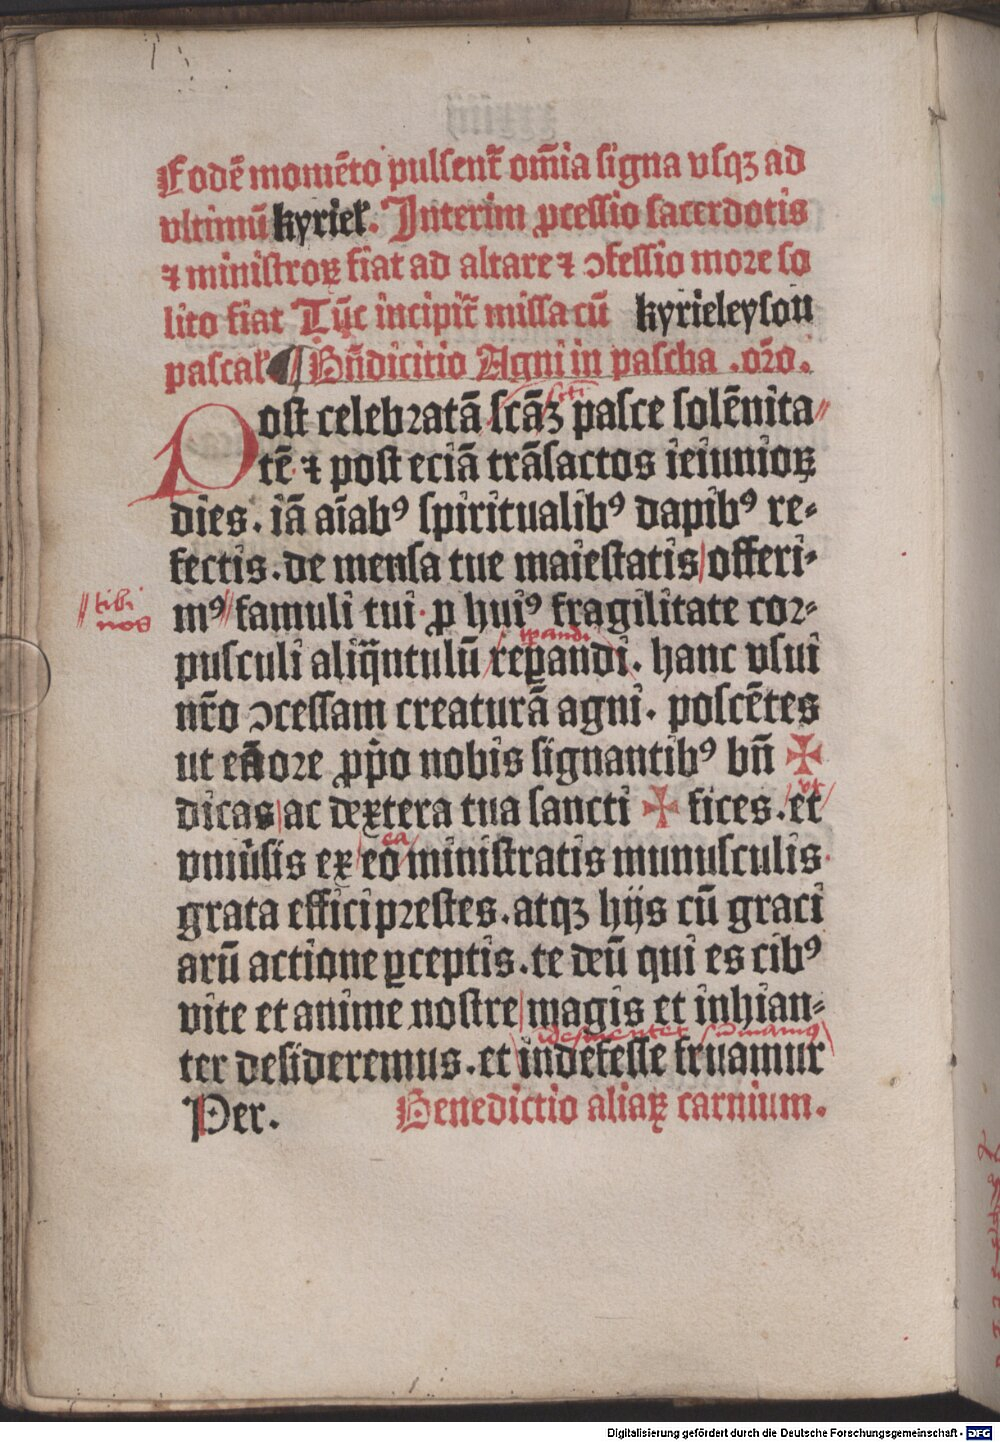 Eodē momēto pulsent᷑ om̄ia signa vsqꝫ ad
vltimū kyriel. Interim ꝓcessio sacerdotis
⁊ ministroꝝ fiat ad altare ⁊ ↄfessio more so
lito fiat Tūc incipit᷑ missa cū kyrieleyson
pascal ¶ Bn̄dicitio Agni in pascha .or̄o.
scti
Post celebratā scāꝫ pasce solēnita
tē ⁊ post eciā trāsactos ieiunioꝝ
dies. iā aīabꝰ spiritualibꝰ dapibꝰ re⸗
fectis. de mensa tue maiestatis offeri⸗
tibi
nos
mꝰ famuli tui ꝓ huiꝰ fragilitate cor⸗
pusculi aliq̄ntulū reꝑandi. hanc vsui
nr̄o ↄcessam creaturā agni. poscētes
ut eā ore ꝓp̄o nobis signantibꝰ bn̄ ✠
dicas ac dextera tua sancti ✠ fices. et
ut
ea
vniūsis ex eo ministratis munusculis
grata effici prestes. atqꝫ hijs cū graci
arū actione ꝑceptis. te deū qui es cibꝰ
vite et anime nostre magis et inhian⸗
ter desideremus. et indefesse fruamur
Per. Benedictio aliaꝝ carnium.
Digitalisierung gefördert durch die Deutsche Forschungsgemeinschaft - DFG